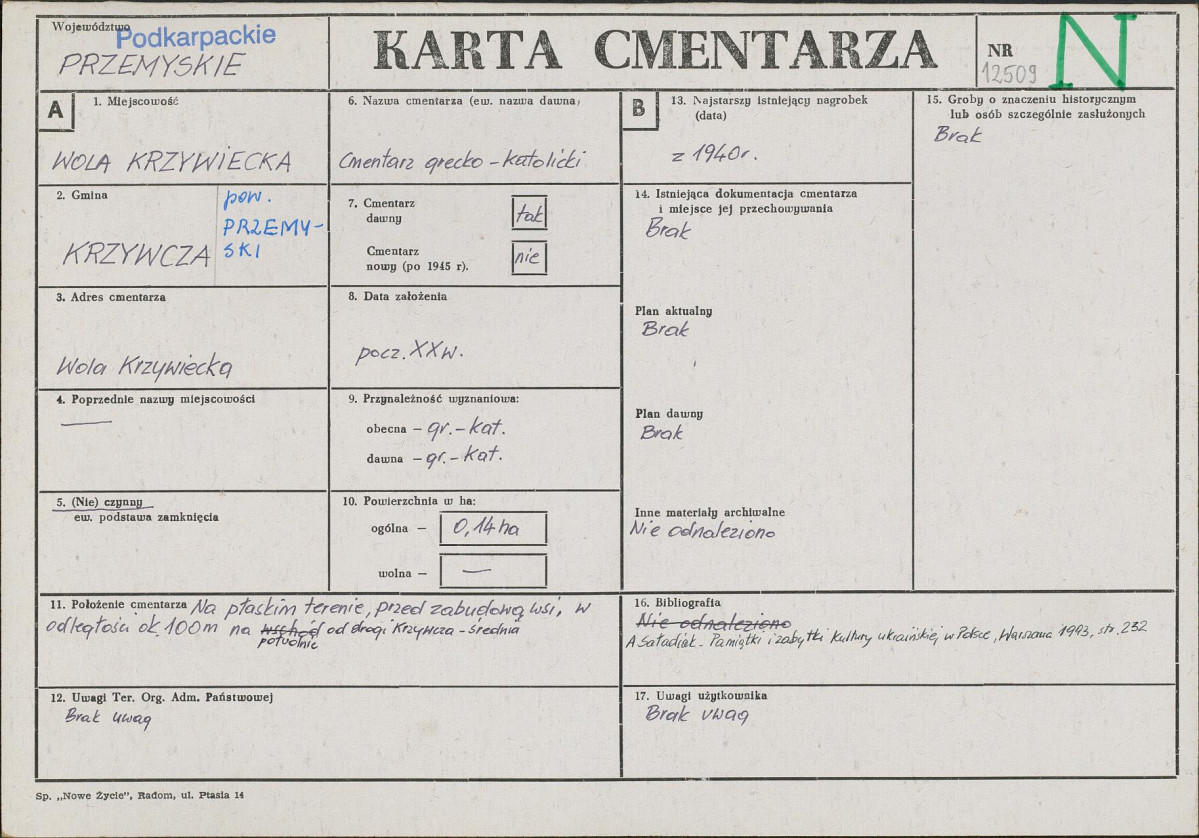 Województwo
Podkarpackie
PRZEMYSKIE
KARTA CMENTARZA
NR
12509
N
A
1. Miejscowość
WOLA KRZYWIECKA
2. Gmina
KRZYWCZA
pow.
PRZEMY-
SKI
3. Adres cmentarza
Wola Krzywiecka
4. Poprzednie nazwy miejscowości
—
5. (Nie) czynny
ew. podstawa zamknięcia
6. Nazwa cmentarza (ew. nazwa dawna)
Cmentarz grecko-katolicki
7. Cmentarz
dawny
tak
Cmentarz
nowy (po 1945 r).
nie
8. Data założenia
pocz. XXw.
9. Przynależność wyznaniowa:
obecna – gr.-kat.
dawna – gr.-kat.
10. Powierzchnia w ha:
ogólna – 0,14ha
wolna – —
11. Położenie cmentarza Na płaskim terenie, przed zabudową wsi, w
odległości ok. 100m na wschód od drogi Krzywcza-Średnia
południe
12. Uwagi Ter. Org. Adm. Państwowej
Brak uwag
B
13. Najstarszy istniejący nagrobek
(data)
z 1940r.
14. Istniejąca dokumentacja cmentarza
i miejsce jej przechowywania
Brak
Plan aktualny
Brak
Plan dawny
Brak
Inne materiały archiwalne
Nie odnaleziono
15. Groby o znaczeniu historycznym
lub osób szczególnie zasłużonych
Brak
16. Bibliografia
Nie odnaleziono
A Saładiak - Pamiątki i zabytki kultury ukraińskiej w Polsce, Warszawa 1993, str. 232
17. Uwagi użytkownika
Brak uwag
Sp. „Nowe Życie", Radom, ul. Ptasia 14